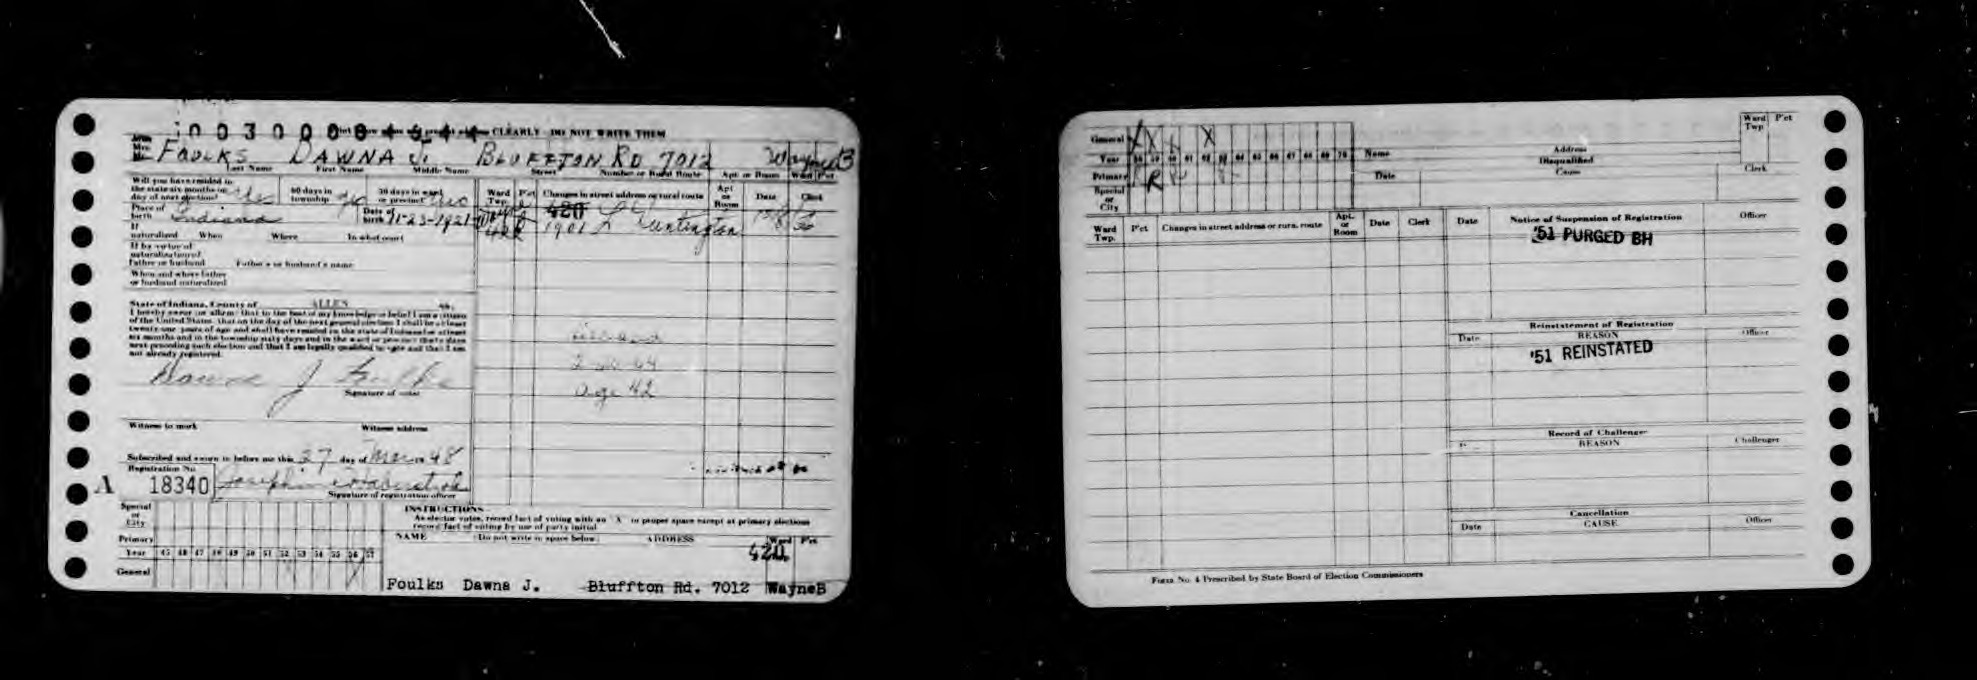 CLEARLY DO NOT WRITE THEM
FOULKS DAWNA J. BLUFFTON RD 7012 WayneB
Last Name First Name Middle Name Street Number or Rural Route Apt. or Room Ward P'ct
Will you have resided in
the state six months on
day of next election? Yes
60 days in
township yes
30 days in ward
or precinct yes
Ward
Twp.
P'ct
Changes in street address or rural route
Apt
or
Room
Date
Clerk
Place of
birth Indiana
Date of
birth 11-23-1921
420
1901 Huntington
If
naturalized When Where In what court
If by virtue of
naturalization of
Father or husband Father's or husband's name
When and where father
or husband naturalized
State of Indiana, County of ALLEN ss.
I hereby swear (or affirm) that to the best of my knowledge or belief I am a citizen
of the United States, that on the day of the next general election I shall be at least
twenty-one years of age and shall have resided in the state of Indiana for at least
six months and in the township sixty days and in the ward or precinct thirty days
next preceding such election and that I am legally qualified to vote and that I am
not already registered.
Dawna J Foulks
Signature of voter
64
age 42
Witness to mark Witness address
Subscribed and sworn to before me this 27 day of Mar 48
Registration No.
A 18340
Signature of registration officer
Special
or
City
Primary
Year 45 46 47 48 49 50 51 52 53 54 55 56 57
General
INSTRUCTIONS
As elector votes, record fact of voting with an X in proper space except at primary elections
record fact of voting by use of party initial
NAME (Do not write in space below) ADDRESS Ward P'ct
420
Foulks Dawna J. Bluffton Rd. 7012 WayneB
General X X X
Year 58 59 60 61 62 63 64 65 66 67 68 69 70
Primary R
Special
or
City
Name Address
Ward
Twp
P'ct
Disqualified
Date Cause Clerk
Ward
Twp.
P'ct
Changes in street address or rural route
Apt.
or
Room
Date
Clerk
Date Notice of Suspension of Registration Officer
'51 PURGED BH
Reinstatement of Registration
Date REASON Officer
'51 REINSTATED
Record of Challenger
REASON Challenger
Cancellation
Date CAUSE Officer
Form No. 4 Prescribed by State Board of Election Commissioners